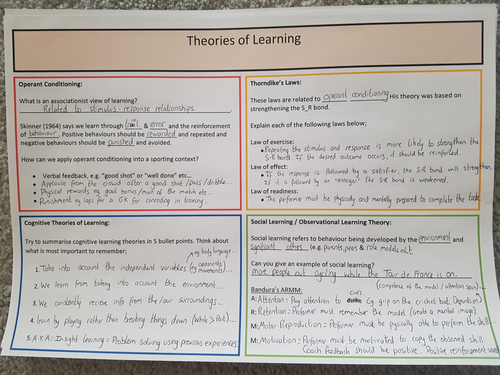 Theories of Learning
Operant Conditioning:
What is an associationist view of learning?
Related to stimulus-response relationships.
Skinner (1964) says we learn through trial & error and the reinforcement
of behaviour. Positive behaviours should be rewarded and repeated and
negative behaviours should be punished and avoided.
How can we apply operant conditioning into a sporting context?
• Verbal feedback, e.g. "good shot" or "well done" etc...
• Applause from the crowd after a good shot/pass/dribble...
• Physical rewards eg goal bonus/man of the match etc...
• Punishment eg laps for a GK for conceding in training...
Thorndike's Laws:
These laws are related to operant conditioning. His theory was based on
strengthening the S_R bond.
Explain each of the following laws below.
Law of exercise:
• Repeating the stimulus and response is more likely to strengthen the
S-R bond. If the desired outcome occurs, it should be reinforced.
Law of effect:
• If the response is followed by a satisfier the S-R bond will strengthen
If it is followed by an the S-R bond is weakened.
Law of readiness:
• The performer must be physically and mentally prepared to complete the task.
Cognitive Theories of Learning:
Try to summarise cognitive learning theories in 5 bullet points. Think about
what is most important to remember;
eg body language,
opponents
movements...
1. Take into account the independent variables
2. We learn from taking into account the environment...
3. We constantly recieve info from the/our surroundings...
4. Learn by playing rather than breaking things down (Whole > Part)...
5. A.K.A: Insight Learning = Problem solving using previous experiences
Social Learning / Observational Learning Theory:
Social learning refers to behaviour being developed by the environment and
significant others (e.g. parents, peers & role models etc).
Can you give an example of social learning?
more people out cycling while the Tour de France is on.
Bandura's ARMM:
(competence of the model / attention span)
cues
A: Attention: Pay attention to Eg grip on the cricket bat. Depends on
R: Retention: Performer must remember the model (create a mental image)
M: Motor Reproduction: Performer must be physically able to perform the skill
M: Motivation: Performer must be motivated to copy the observed skill.
Coach feedback should be positive. Positive reinforcement